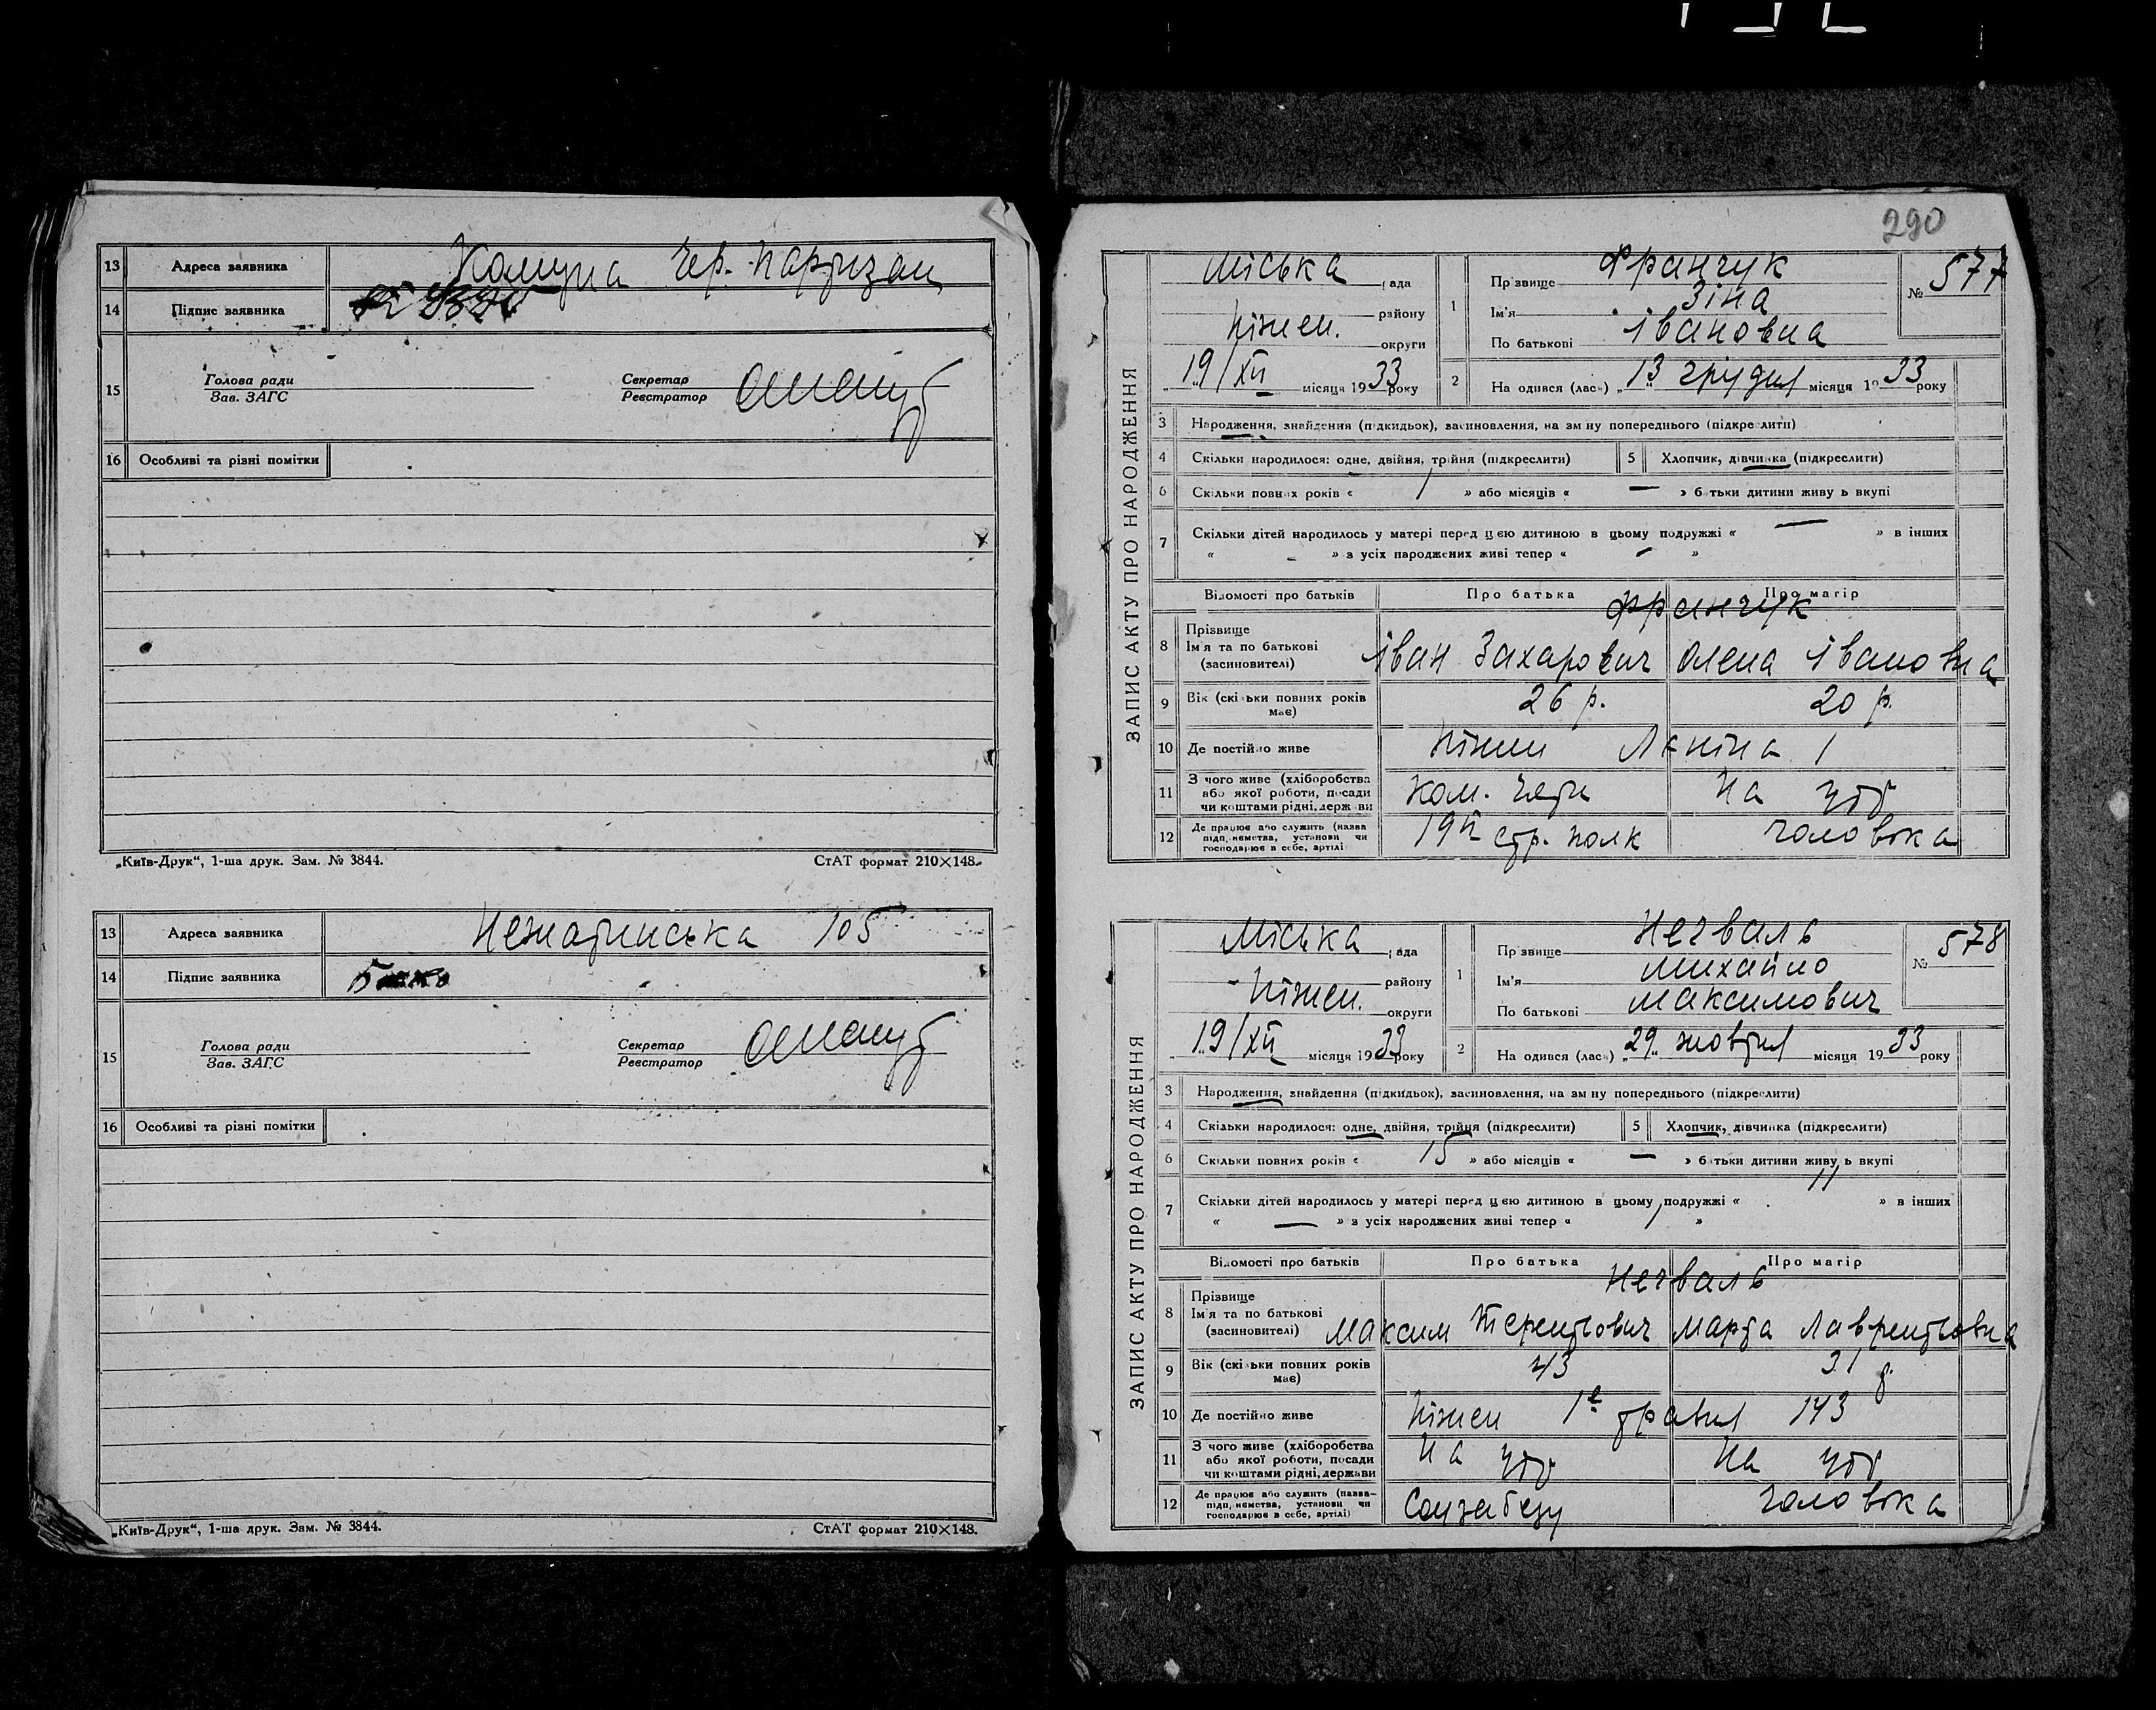 13 Адреса заявника Комуна Чер. Партизан
14 Підпис заявника
15 Голова ради Секретар
Зав. ЗАГС Реєстратор
16 Особливі та різні помітки
„Київ-Друк“, 1-ша друк. Зам. № 3844. СтАТ формат 210×148.
13 Адреса заявника Нежатинська 105
14 Підпис заявника
15 Голова ради Секретар
Зав. ЗАГС Реєстратор
16 Особливі та різні помітки
„Київ-Друк“, 1-ша друк. Зам. № 3844. СтАТ формат 210×148.
290
ЗАПИС АКТУ ПРО НАРОДЖЕННЯ
Міська рада
району
Ніжен. округи
„19/XII місяця 1933 року
1 Прізвище Франчук № 577
Ім'я Зіна
По батькові Івановна
2 На одився (лась) „13 грудня місяця 1933 року
3 Народження, знайдення (підкидьок), засиновлення, на зм ну попереднього (підкреслити)
4 Скільки народилося: одне, двійня, трійня (підкреслити) 5 Хлопчик, дівчинка (підкреслити)
6 Скільки повних років « 1 » або місяців « — » б тьки дитини живу ь вкупі
7 Скільки дітей народилось у матері перед цією дитиною в цьому подружжі « — » в інших
« - » з усіх народжених живі тепер « - »
Відомості про батьків Про батька Про матір
Франчук
8 Прізвище
Ім'я та по батькові Іван Захарович Олена Івановна
(засиновителі)
9 Вік (скільки повних років має) 26 р. 20 р.
10 Де постійно живе Ніжен Лєніна 1
11 З чого живе (хліборобства
або якої роботи, посади Ком. На утр
чи коштами рідні, держави
12 Де працює або служить (назва
підприємства, установи чи 19й стр. полк чоловіка
господарює в себе, артілі
ЗАПИС АКТУ ПРО НАРОДЖЕННЯ
Міська рада
району
Ніжен. округи
„19/XII місяця 1933 року
1 Прізвище Нечваль № 578
Ім'я Михайло
По батькові Максимович
2 На одився (лась) „29„ жовтня місяця 1933 року
3 Народження, знайдення (підкидьок), засиновлення, на зм ну попереднього (підкреслити)
4 Скільки народилося: одне, двійня, трійня (підкреслити) 5 Хлопчик, дівчинка (підкреслити)
6 Скільки повних років « 15 » або місяців « — » б тьки дитини живу ь вкупі
7 Скільки дітей народилось у матері перед цією дитиною в цьому подружжі « » в інших
« — » з усіх народжених живі тепер « »
Відомості про батьків Про батька Про матір
Нечваль
8 Прізвище
Ім'я та по батькові
(засновителі) Максим Терентьович Марта Лаврентьовна
9 Вік (скільки повних років має) 43 31 р.
10 Де постійно живе Ніжен 1е травня 143
11 З чого живе (хліборобства
або якої роботи, посади На утр На утр
чи коштами рідні, держави
12 Де працює або служить (назва
підприємства, установи чи Соцзабезу чоловіка
господарює в себе, артілі)